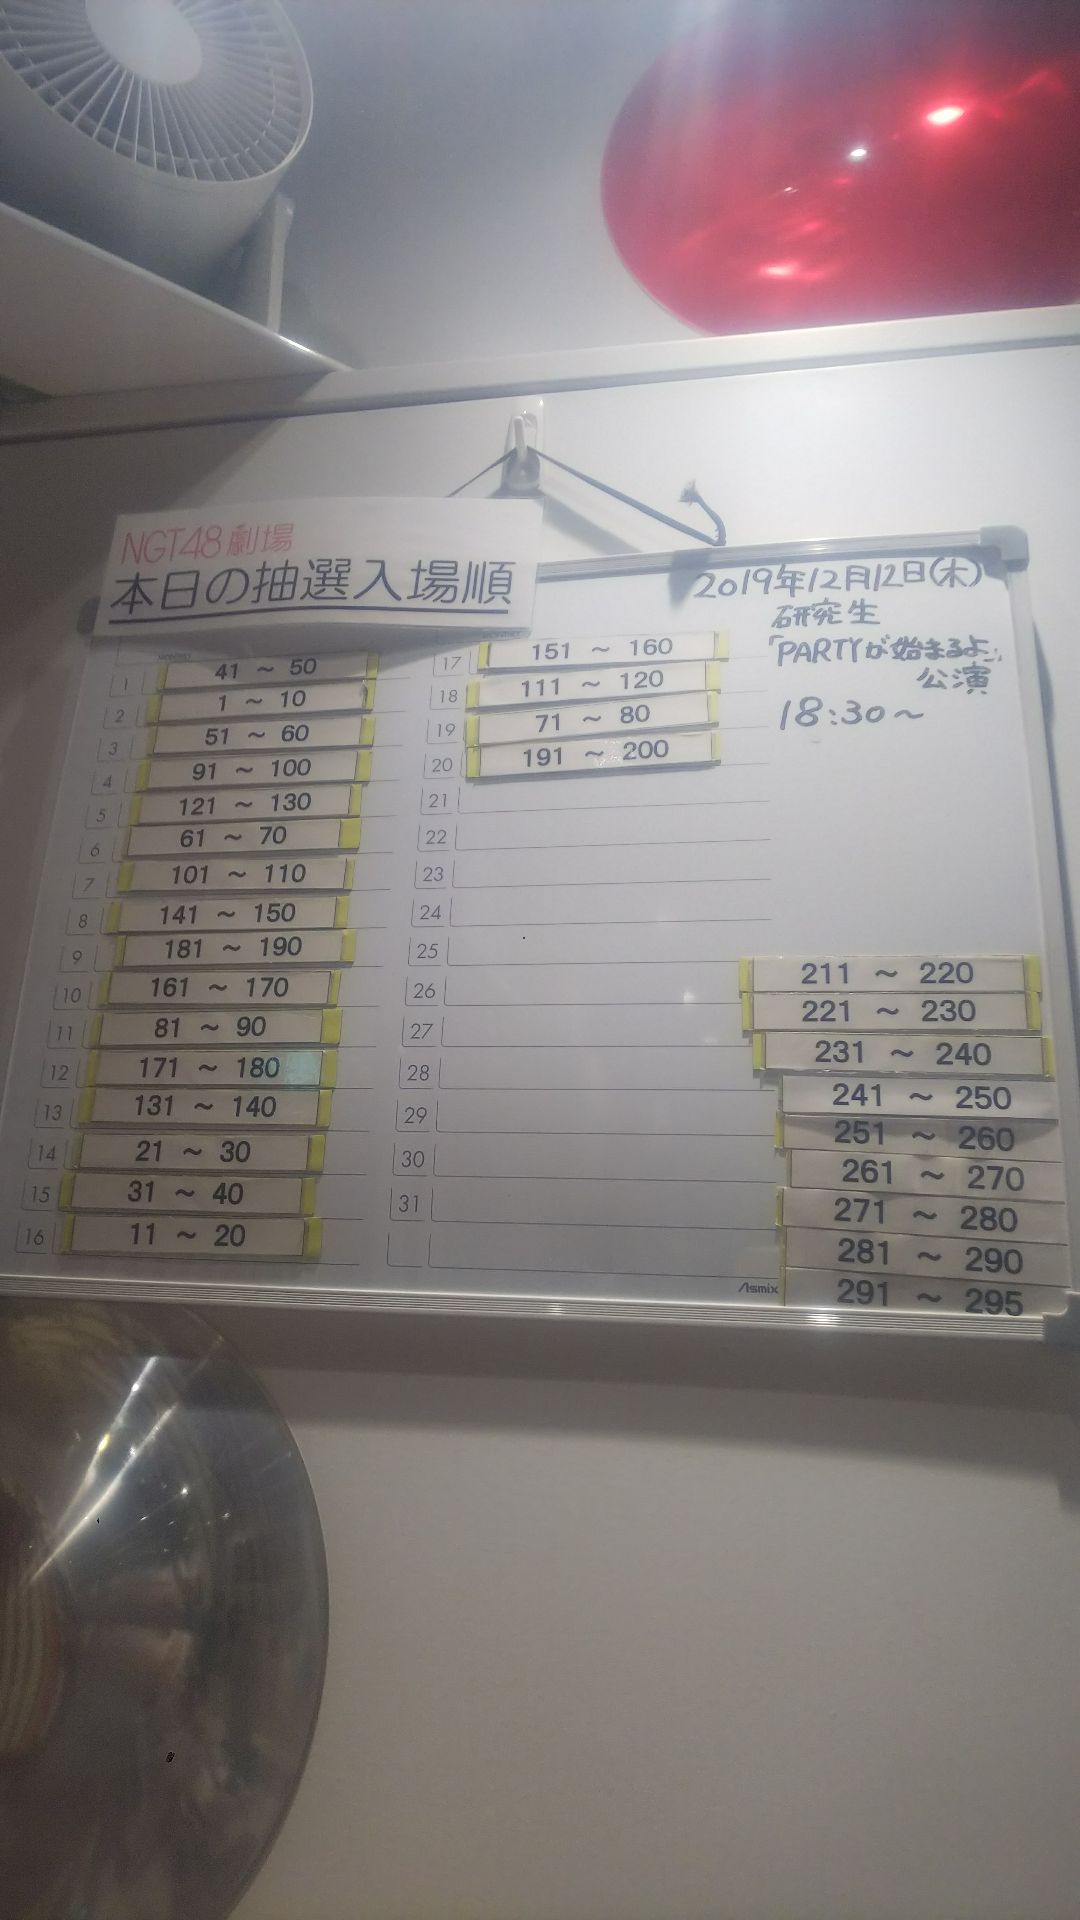 NGT48劇場
本日の抽選入場順
2019年12月12日(木)
研究生
「PARTYが始まるよ」
公演
18:30～
1 41 ～ 50
2 1 ～ 10
3 51 ～ 60
4 91 ～ 100
5 121 ～ 130
6 61 ～ 70
7 101 ～ 110
8 141 ～ 150
9 181 ～ 190
10 161 ～ 170
11 81 ～ 90
12 171 ～ 180
13 131 ～ 140
14 21 ～ 30
15 31 ～ 40
16 11 ～ 20
17 151 ～ 160
18 111 ～ 120
19 71 ～ 80
20 191 ～ 200
21
22
23
24
25
26
27
28
29
30
31
211 ～ 220
221 ～ 230
231 ～ 240
241 ～ 250
251 ～ 260
261 ～ 270
271 ～ 280
281 ～ 290
291 ～ 295
Asmix